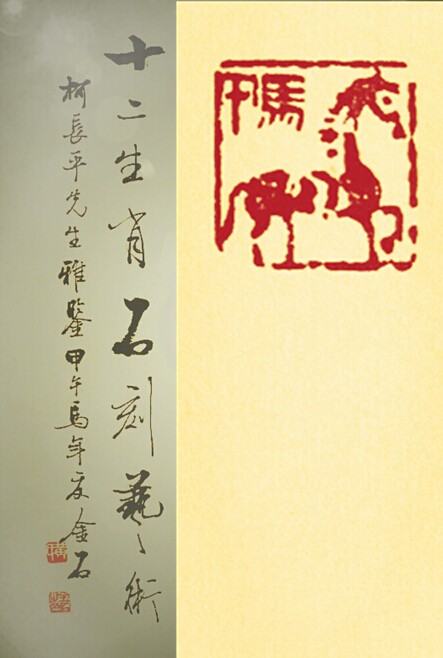 十二生肖石刻藝術
柯長平先生雅鑒甲午馬年夏金石
午馬